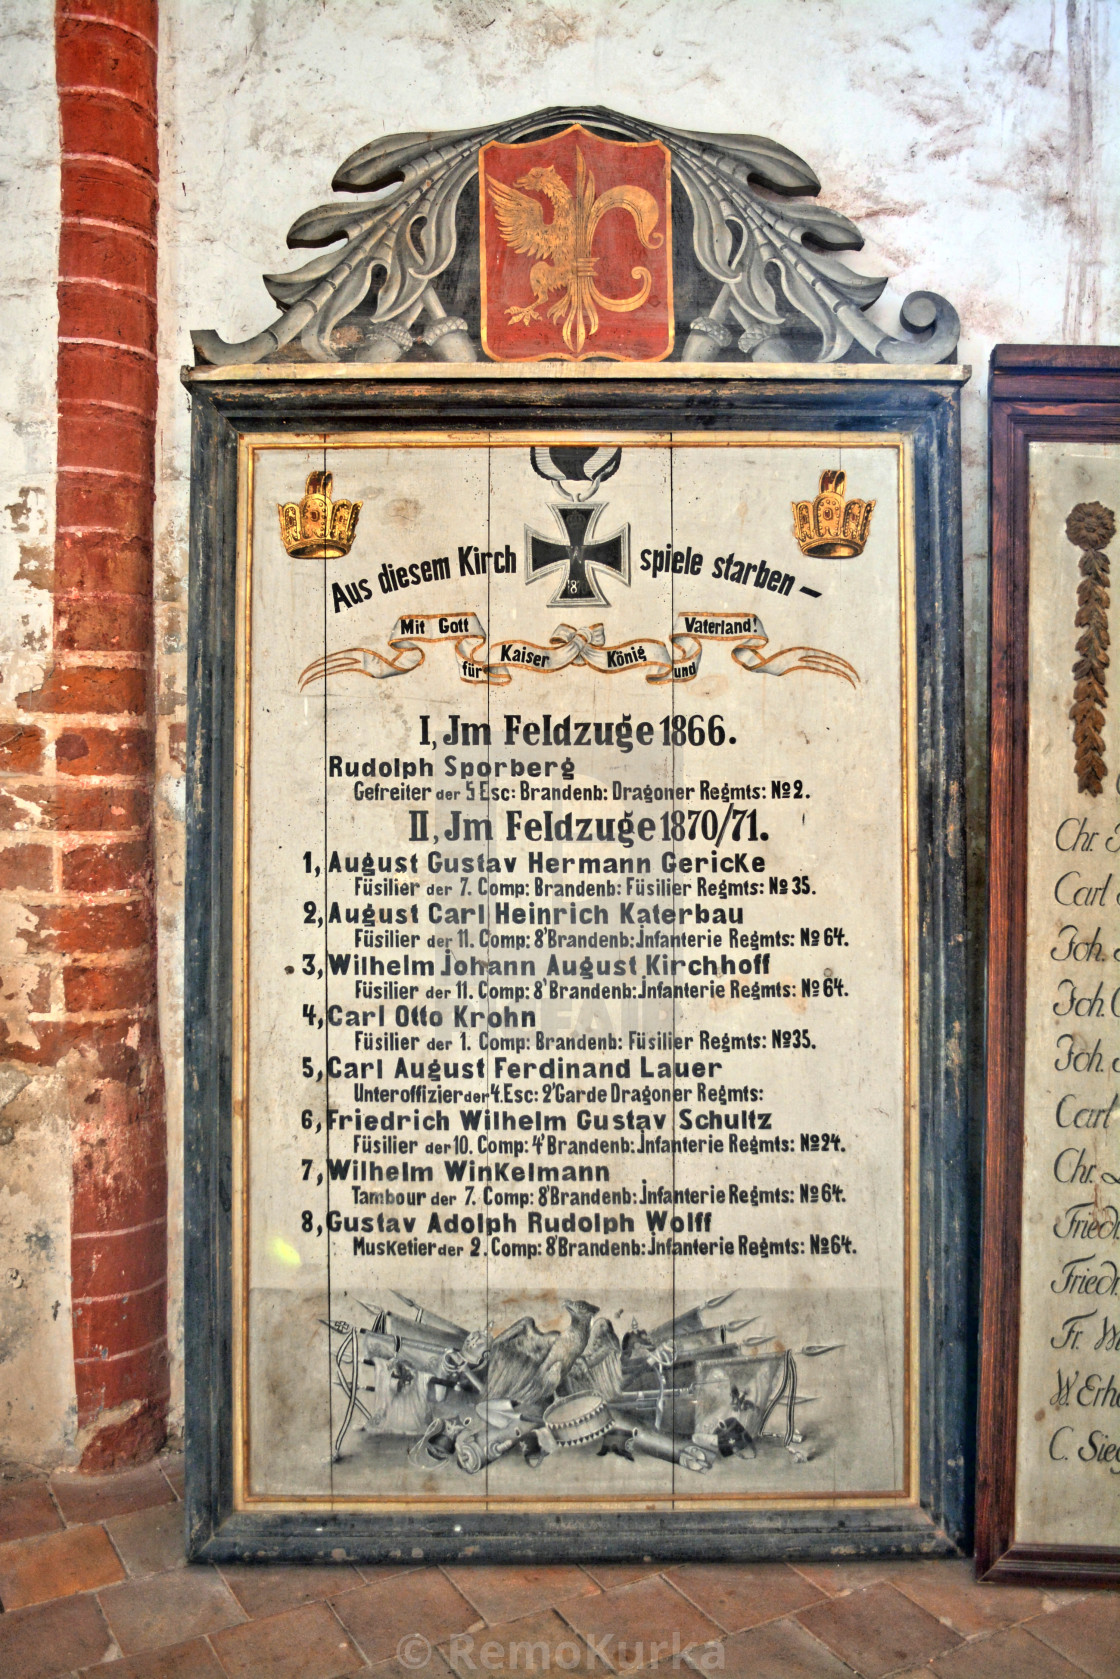 Aus diesem Kirch spiele starben –
Mit Gott für Kaiser König und Vaterland!
I, Jm Feldzuge 1866.
Rudolph Sporberg
Gefreiter der 5 Esc: Brandenb: Dragoner Regmts: № 2.
II, Jm Feldzuge 1870/71.
1, August Gustav Hermann Gericke
Füsilier der 7. Comp: Brandenb: Füsilier Regmts: № 35.
2, August Carl Heinrich Katerbau
Füsilier der 11. Comp: 8' Brandenb: Jnfanterie Regmts: № 64.
3, Wilhelm Johann August Kirchhoff
Füsilier der 11. Comp: 8' Brandenb: Jnfanterie Regmts: № 64.
4, Carl Otto Krohn
Füsilier der 1. Comp: Brandenb: Füsilier Regmts: № 35.
5, Carl August Ferdinand Lauer
Unteroffizier der 4. Esc: 2' Garde Dragoner Regmts:
6, Friedrich Wilhelm Gustav Schultz
Füsilier der 10. Comp: 4' Brandenb: Jnfanterie Regmts: № 24.
7, Wilhelm Winkelmann
Tambour der 7. Comp: 8' Brandenb: Jnfanterie Regmts: № 64.
8, Gustav Adolph Rudolph Wolff
Musketier der 2. Comp: 8' Brandenb: Jnfanterie Regmts: № 64.
Chr.
Carl
Joh.
Joh.
Joh.
Carl
Chr.
Friedr.
Friedr.
Fr.
W.
C.
© RemoKurka